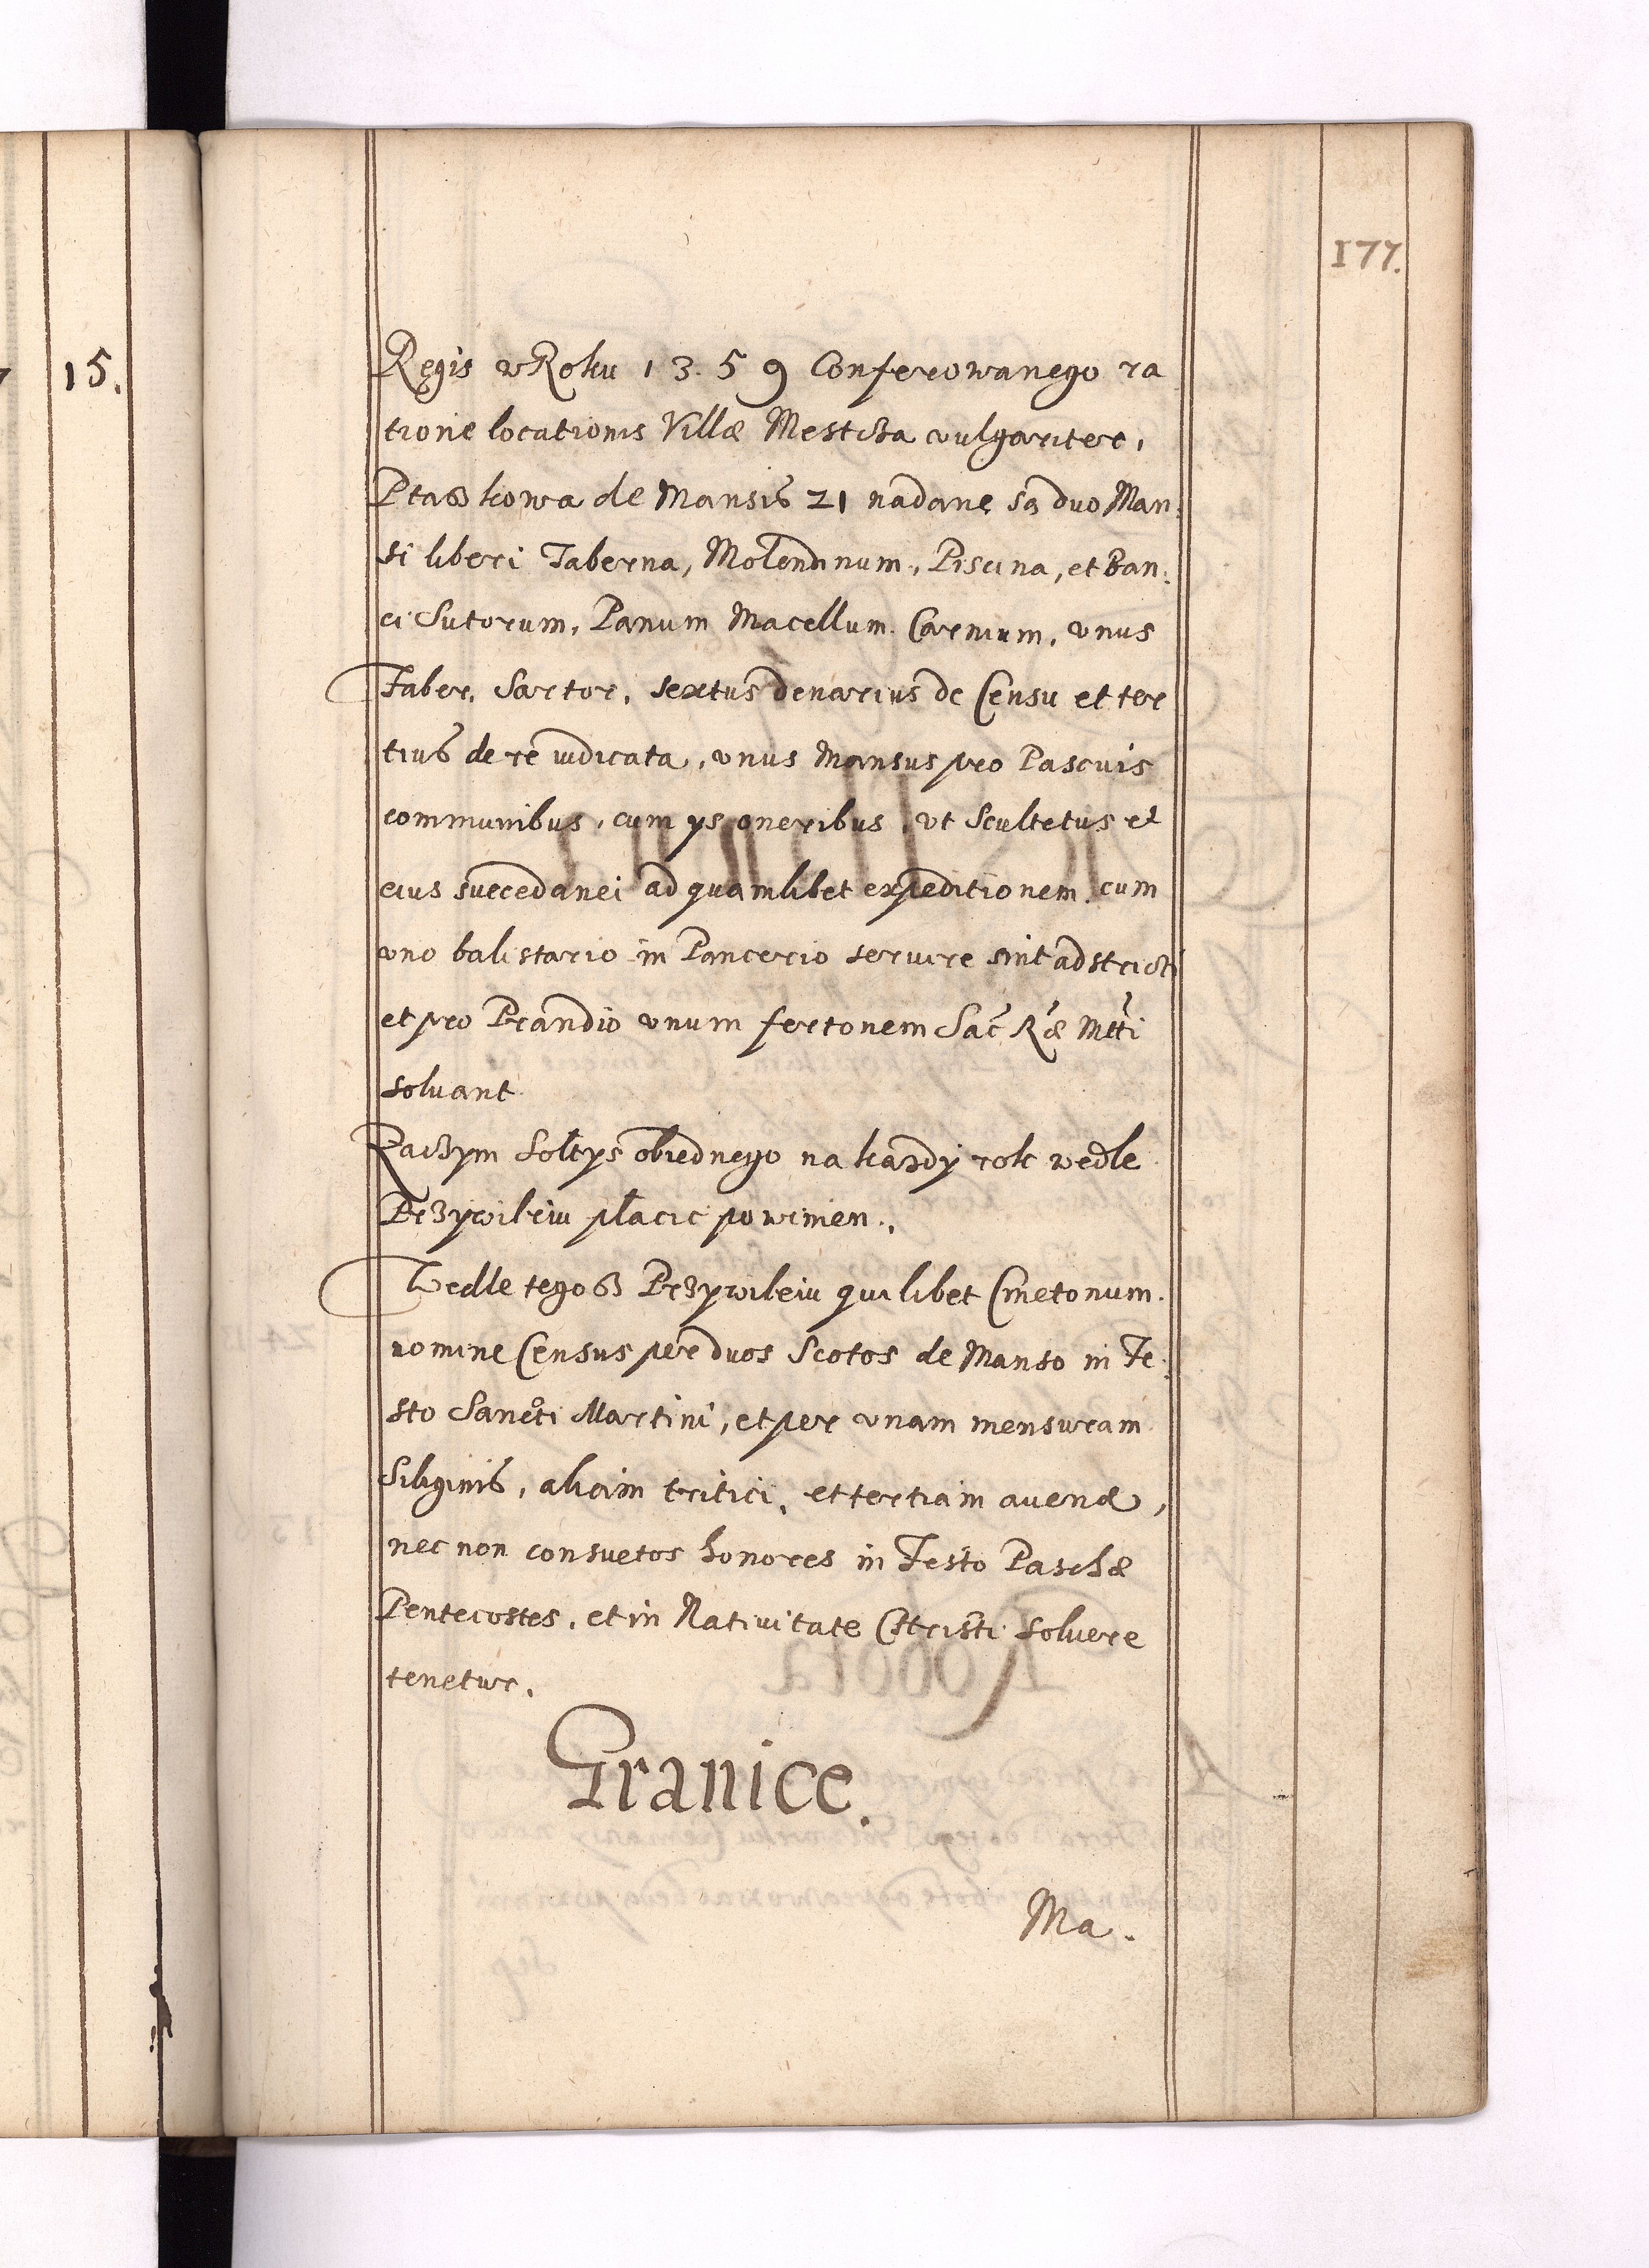 177.
15.
Regis w Roku 1359 Conferowanego ra
tione locationis Villæ Mestcza vulgariter,
Ptaszkowa de Mansis 21 nadane są duo Man:
si liberi Taberna, Molendinum, Piscina, et Ban:
ci Sutorum, Panum Macellum Carnium, vnus
Faber, Sartor, sextus denarius de Censu et ter
tius de re iudicata, vnus Mansus pro Pascuis
communibus, cum ys oneribus, vt Scultetus et
eius succedanei ad quamlibet expeditionem cum
vno balistario in Pancerio seruire sint adstricti
et pro Prandio vnum fertonem Sac̃ Ræ Mtti
soluant
Zaczym Sołtys obiednego na kazdy rok wedle
Przywileiu płacic powinien.
Wedle tegosz Przywileiu quilibet Cmetonum
nomine Census per duos Scotos de Manso in Fe:
sto Sancti Martini, et per vnam mensuram
Siliginis, aliam tritici, et tertiam auenæ,
nec non consuetos honores in Festo Paschæ
Pentecostes, et in Natiuitate Christi soluere
tenetur.
Granice.
Ma.